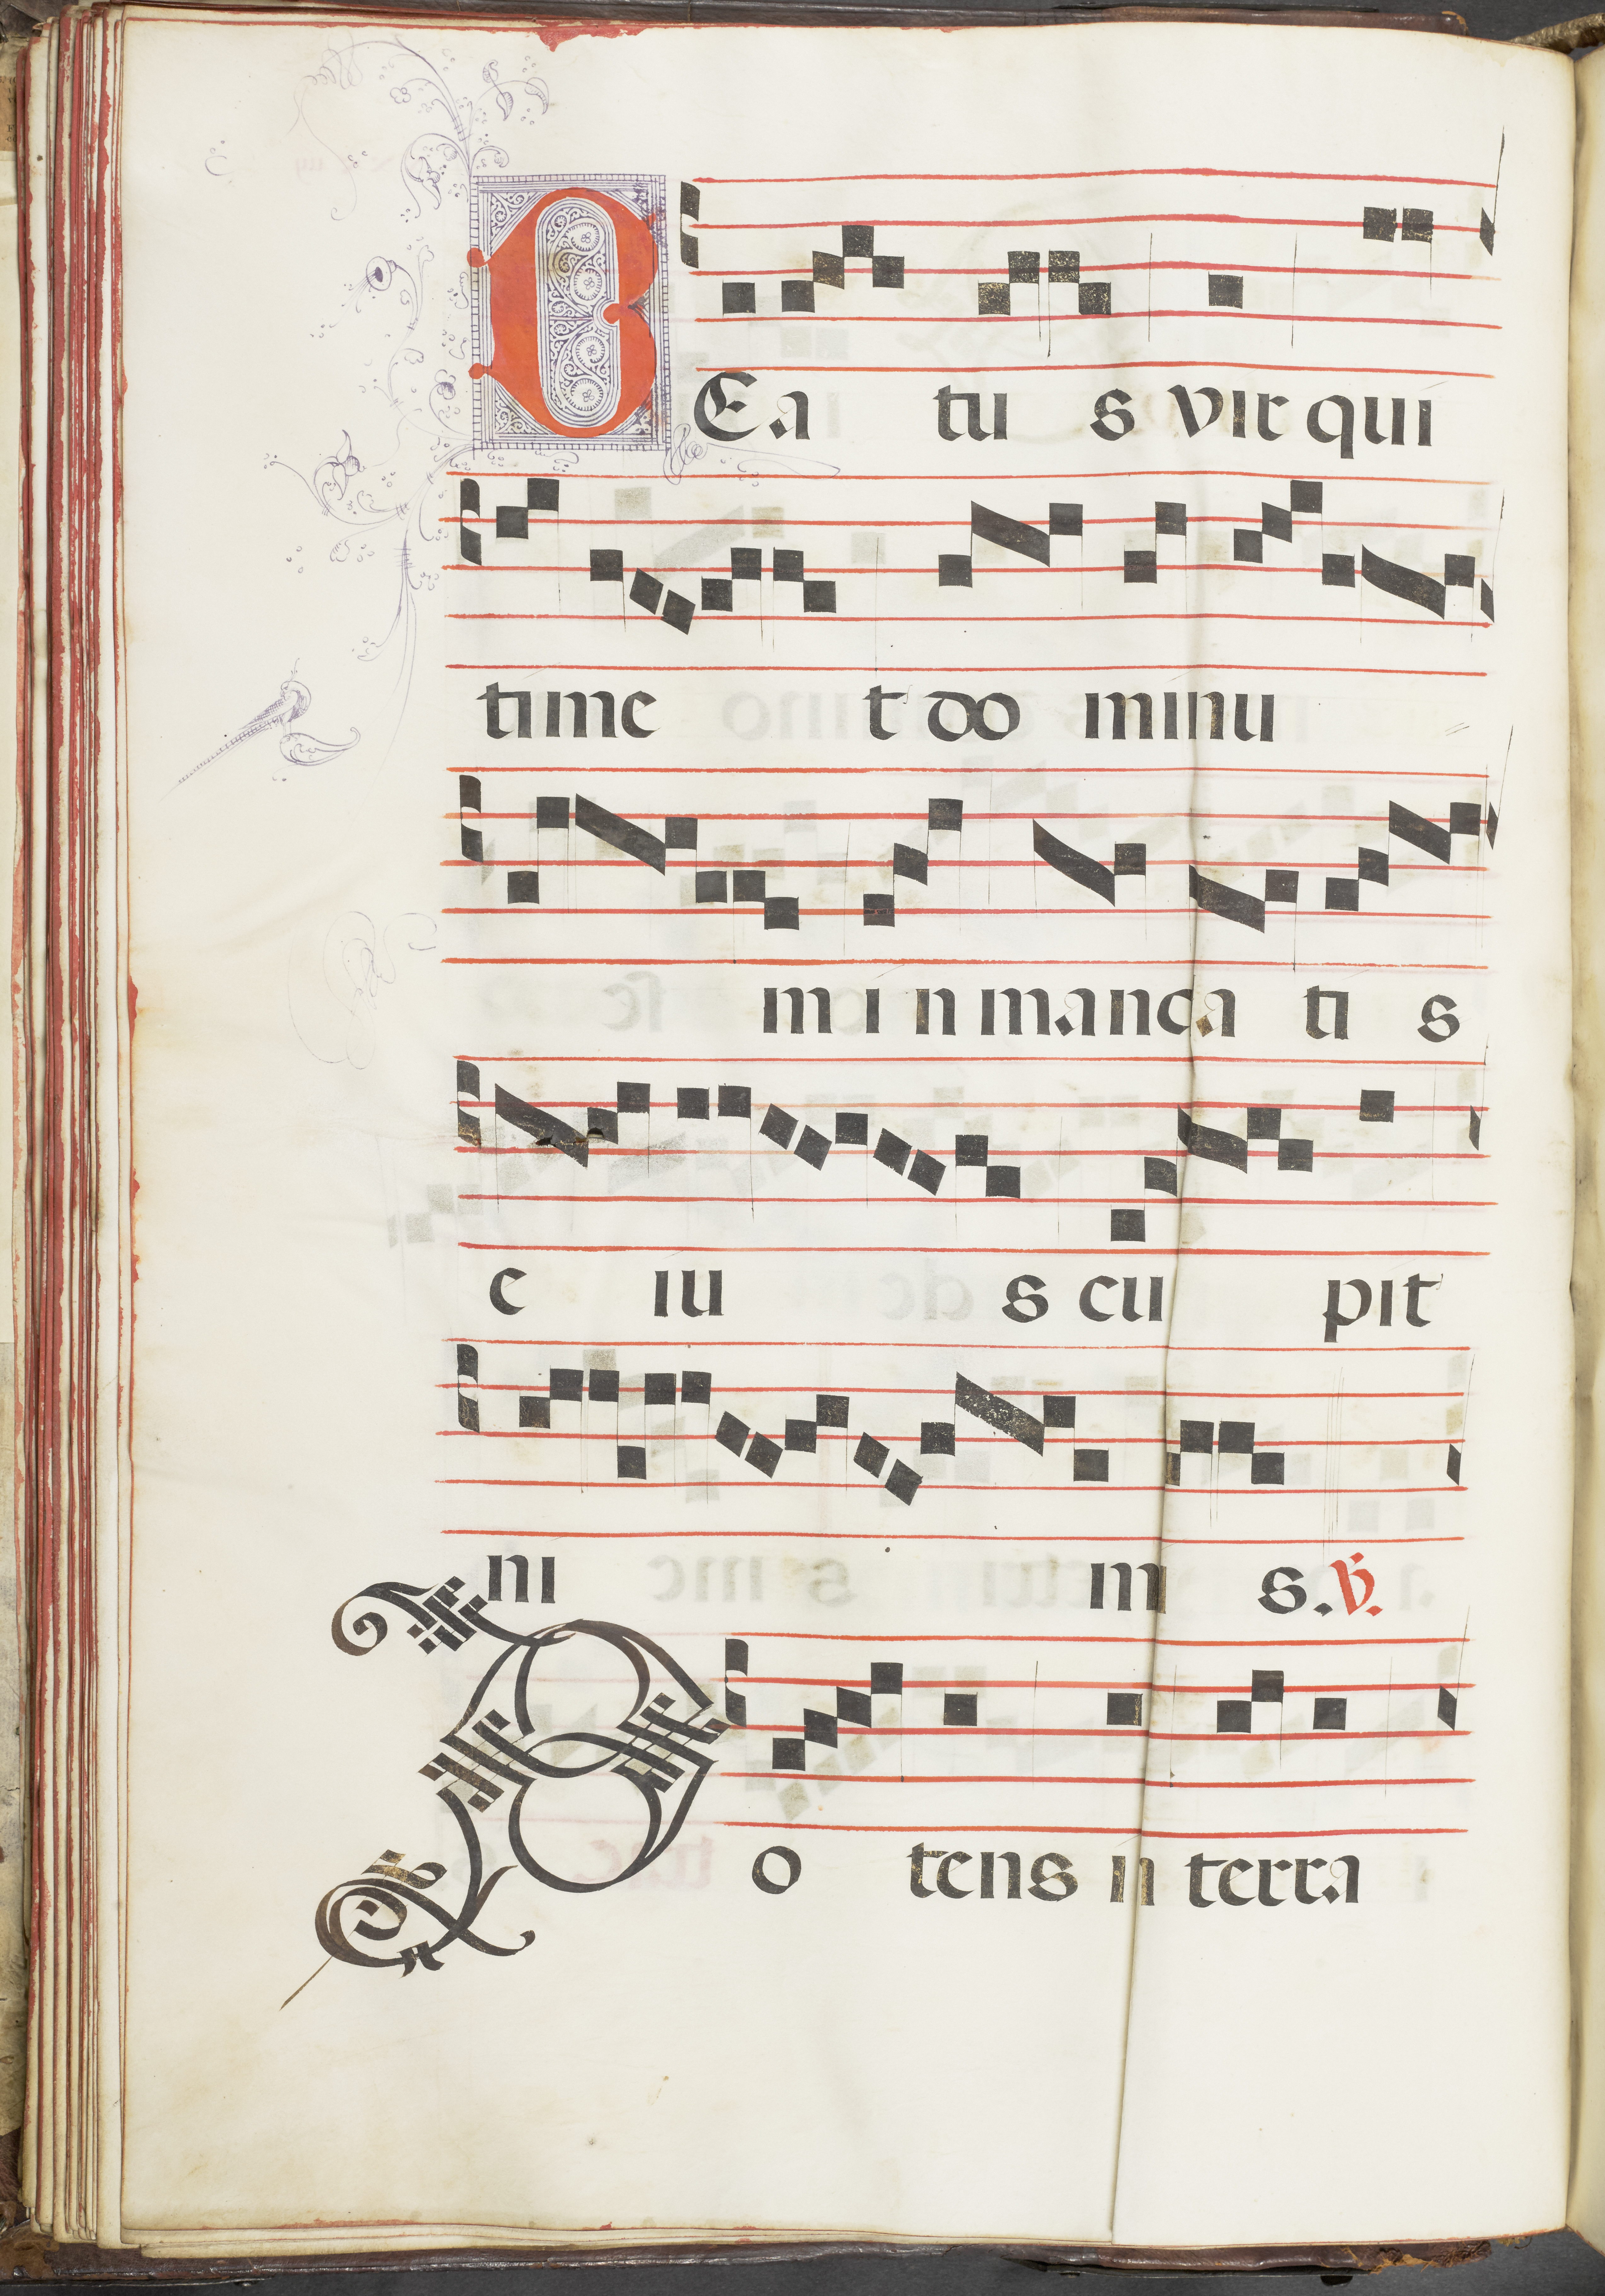 BEa tu s vir qui
time t do minu
m i n manda ti s
e iu s cu pit
ni m s. ℣.
Po tens in terra